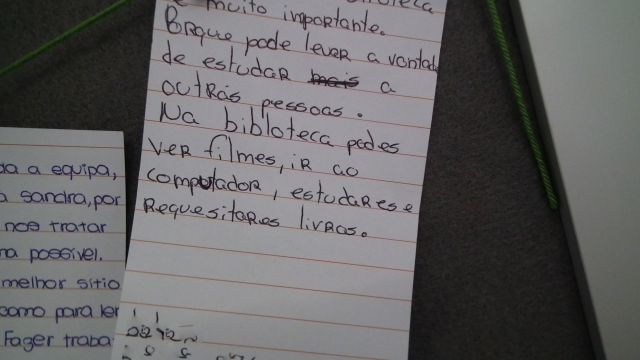 muito importante.
Porque pode levar a vontade
de estudar mais a
outras pessoas.
Na bibloteca podes
ver filmes, ir ao
computador, estudares e
requesitares livros.
a equipa,
sandra, por
nos tratar
possível.
melhor sitio
como para ler
Fazer traba